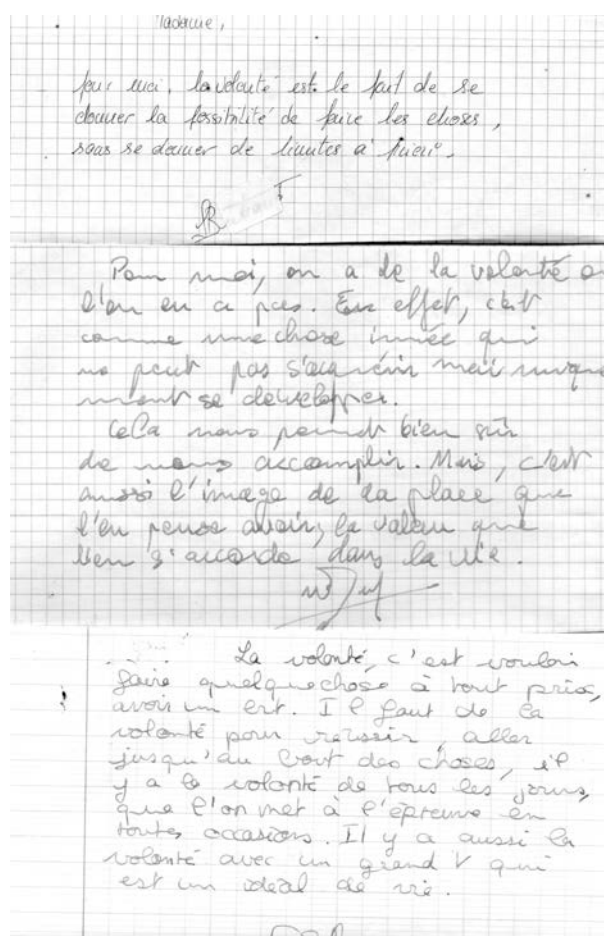 Madame,
pour moi, la volonté est le fait de se
donner la possibilité de faire les choses,
sans se donner de limites à priori.
Pour moi, on a de la volonté o
l'on en a pas. En effet, c'est
comme une chose innée qui
ne peut pas s'acquérir mai unique
ment se développer.
Cela nous permet bien sûr
de nous accomplir. Mais, c'est
aussi l'image de la place que
l'on pense avoir, la valeur que
l'on s'accorde dans la vie.
La volonté, c'est vouloir
faire quelque chose à tout prix,
avoir un but. Il faut de la
volonté pour réussir, aller
jusqu'au bout des choses, il
y a la volonté de tous les jours,
que l'on met à l'épreuve en
toutes occasions. Il y a aussi la
volonté avec un grand V qui
est un idéal de vie.